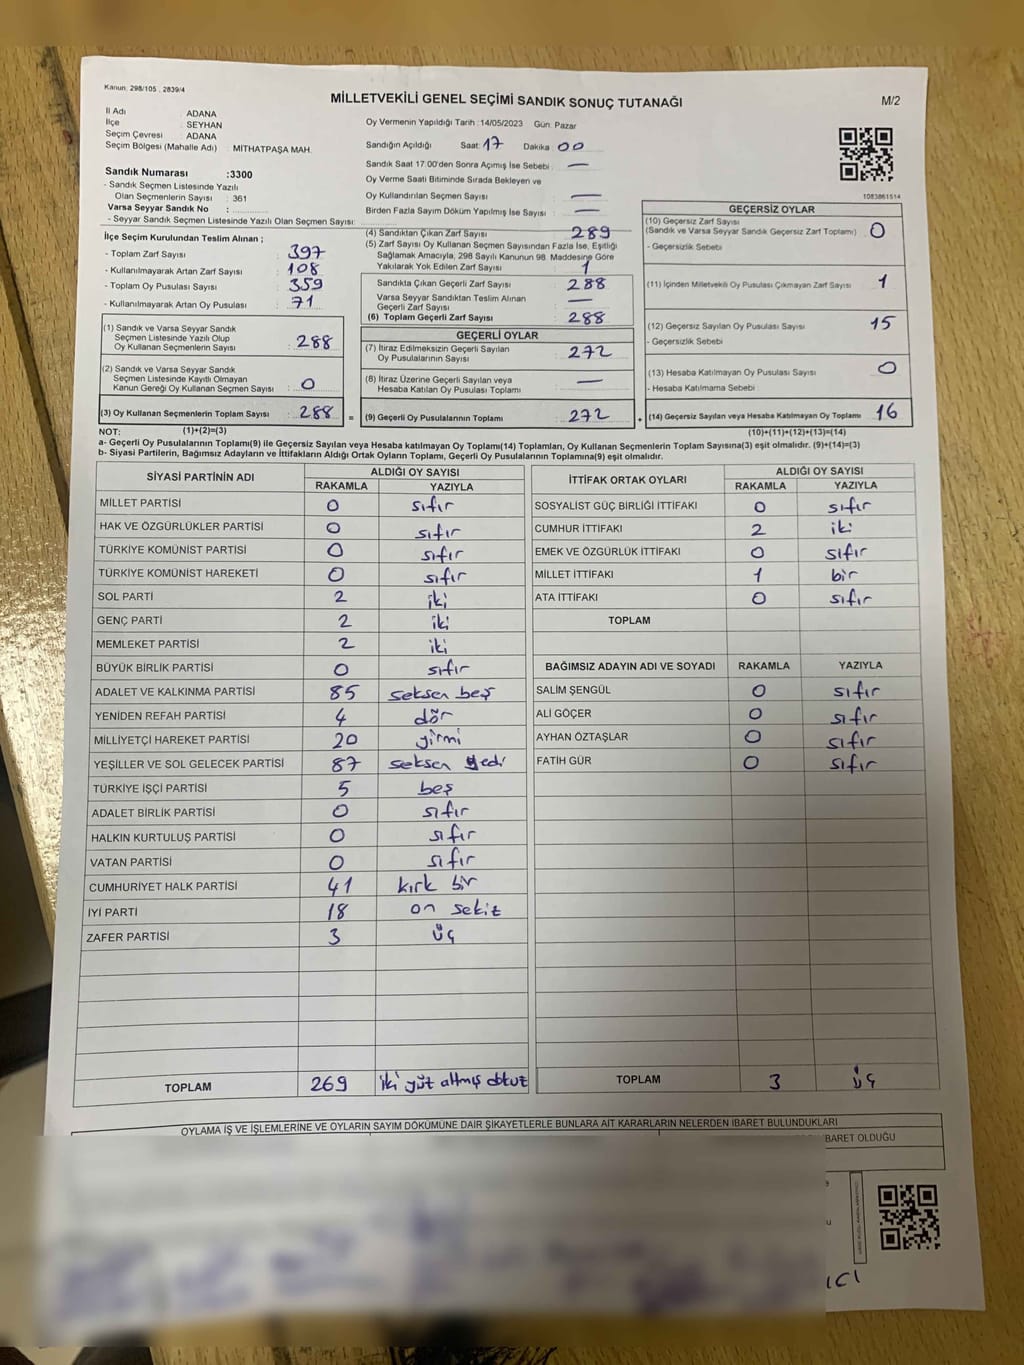 Kanun: 298/105 , 2839/4
MİLLETVEKİLİ GENEL SEÇİMİ SANDIK SONUÇ TUTANAĞI
M/2
İl Adı ADANA
İlçe SEYHAN
Seçim Çevresi ADANA
Seçim Bölgesi (Mahalle Adı) MİTHATPAŞA MAH.
Oy Vermenin Yapıldığı Tarih :14/05/2023 Gün: Pazar
Sandığın Açıldığı Saat: 17 Dakika 00
Sandık Saat 17.00'den Sonra Açımış İse Sebebi : —
Oy Verme Saati Bitiminde Sırada Bekleyen ve
Oy Kullandırılan Seçmen Sayısı —
Birden Fazla Sayım Döküm Yapılmış İse Sayısı : —
1083861514
Sandık Numarası :3300
- Sandık Seçmen Listesinde Yazılı
Olan Seçmenlerin Sayısı : 361
Varsa Seyyar Sandık No :
- Seyyar Sandık Seçmen Listesinde Yazılı Olan Seçmen Sayısı:
İlçe Seçim Kurulundan Teslim Alınan ;
- Toplam Zarf Sayısı : 397
- Kullanılmayarak Artan Zarf Sayısı : 108
- Toplam Oy Pusulası Sayısı : 359
- Kullanılmayarak Artan Oy Pusulası : 71
(1) Sandık ve Varsa Seyyar Sandık
Seçmen Listesinde Yazılı Olup
Oy Kullanan Seçmenlerin Sayısı : 288
(2) Sandık ve Varsa Seyyar Sandık
Seçmen Listesinde Kayıtlı Olmayan
Kanun Gereği Oy Kullanan Seçmen Sayısı : 0
(3) Oy Kullanan Seçmenlerin Toplam Sayısı : 288 =
(4) Sandıktan Çıkan Zarf Sayısı 289
(5) Zarf Sayısı Oy Kullanan Seçmen Sayısından Fazla İse, Eşitliği
Sağlamak Amacıyla, 298 Sayılı Kanunun 98. Maddesine Göre
Yakılarak Yok Edilen Zarf Sayısı 1
Sandıkta Çıkan Geçerli Zarf Sayısı : 288
Varsa Seyyar Sandıktan Teslim Alınan
Geçerli Zarf Sayısı : —
(6) Toplam Geçerli Zarf Sayısı : 288
GEÇERLİ OYLAR
(7) İtiraz Edilmeksizin Geçerli Sayılan
Oy Pusulalarının Sayısı : 272
(8) İtiraz Üzerine Geçerli Sayılan veya
Hesaba Katılan Oy Pusulası Toplamı : —
(9) Geçerli Oy Pusulalarının Toplamı : 272 +
GEÇERSİZ OYLAR
(10) Geçersiz Zarf Sayısı
(Sandık ve Varsa Seyyar Sandık Geçersiz Zarf Toplamı) : 0
- Geçersizlik Sebebi
(11) İçinden Milletvekili Oy Pusulası Çıkmayan Zarf Sayısı : 1
(12) Geçersiz Sayılan Oy Pusulası Sayısı : 15
- Geçersizlik Sebebi
(13) Hesaba Katılmayan Oy Pusulası Sayısı : 0
- Hesaba Katılmama Sebebi
(14) Geçersiz Sayılan veya Hesaba Katılmayan Oy Toplamı : 16
NOT: (1)+(2)=(3) (10)+(11)+(12)+(13)=(14)
a- Geçerli Oy Pusulalarının Toplamı(9) ile Geçersiz Sayılan veya Hesaba katılmayan Oy Toplamı(14) Toplamları, Oy Kullanan Seçmenlerin Toplam Sayısına(3) eşit olmalıdır. (9)+(14)=(3)
b- Siyasi Partilerin, Bağımsız Adayların ve İttifakların Aldığı Ortak Oyların Toplamı, Geçerli Oy Pusulalarının Toplamına(9) eşit olmalıdır.
SİYASİ PARTİNİN ADI ALDIĞI OY SAYISI
RAKAMLA YAZIYLA
MİLLET PARTİSİ 0 sıfır
HAK VE ÖZGÜRLÜKLER PARTİSİ 0 sıfır
TÜRKİYE KOMÜNİST PARTİSİ 0 sıfır
TÜRKİYE KOMÜNİST HAREKETİ 0 sıfır
SOL PARTİ 2 iki
GENÇ PARTİ 2 iki
MEMLEKET PARTİSİ 2 iki
BÜYÜK BİRLİK PARTİSİ 0 sıfır
ADALET VE KALKINMA PARTİSİ 85 seksen beş
YENİDEN REFAH PARTİSİ 4 dör
MİLLİYETÇİ HAREKET PARTİSİ 20 yirmi
YEŞİLLER VE SOL GELECEK PARTİSİ 87 seksen yedi
TÜRKİYE İŞÇİ PARTİSİ 5 beş
ADALET BİRLİK PARTİSİ 0 sıfır
HALKIN KURTULUŞ PARTİSİ 0 sıfır
VATAN PARTİSİ 0 sıfır
CUMHURİYET HALK PARTİSİ 41 kırk bir
İYİ PARTİ 18 on sekiz
ZAFER PARTİSİ 3 üç
TOPLAM 269 iki yüt altmış dokuz
İTTİFAK ORTAK OYLARI ALDIĞI OY SAYISI
RAKAMLA YAZIYLA
SOSYALİST GÜÇ BİRLİĞİ İTTİFAKI 0 sıfır
CUMHUR İTTİFAKI 2 iki
EMEK VE ÖZGÜRLÜK İTTİFAKI 0 sıfır
MİLLET İTTİFAKI 1 bir
ATA İTTİFAKI 0 sıfır
TOPLAM
BAĞIMSIZ ADAYIN ADI VE SOYADI RAKAMLA YAZIYLA
SALİM ŞENGÜL 0 sıfır
ALİ GÖÇER 0 sıfır
AYHAN ÖZTAŞLAR 0 sıfır
FATİH GÜR 0 sıfır
TOPLAM 3 üç
OYLAMA İŞ VE İŞLEMLERİNE VE OYLARIN SAYIM DÖKÜMÜNE DAİR ŞİKAYETLERLE BUNLARA AİT KARARLARIN NELERDEN İBARET BULUNDUKLARI
BARET OLDUĞU
ICI